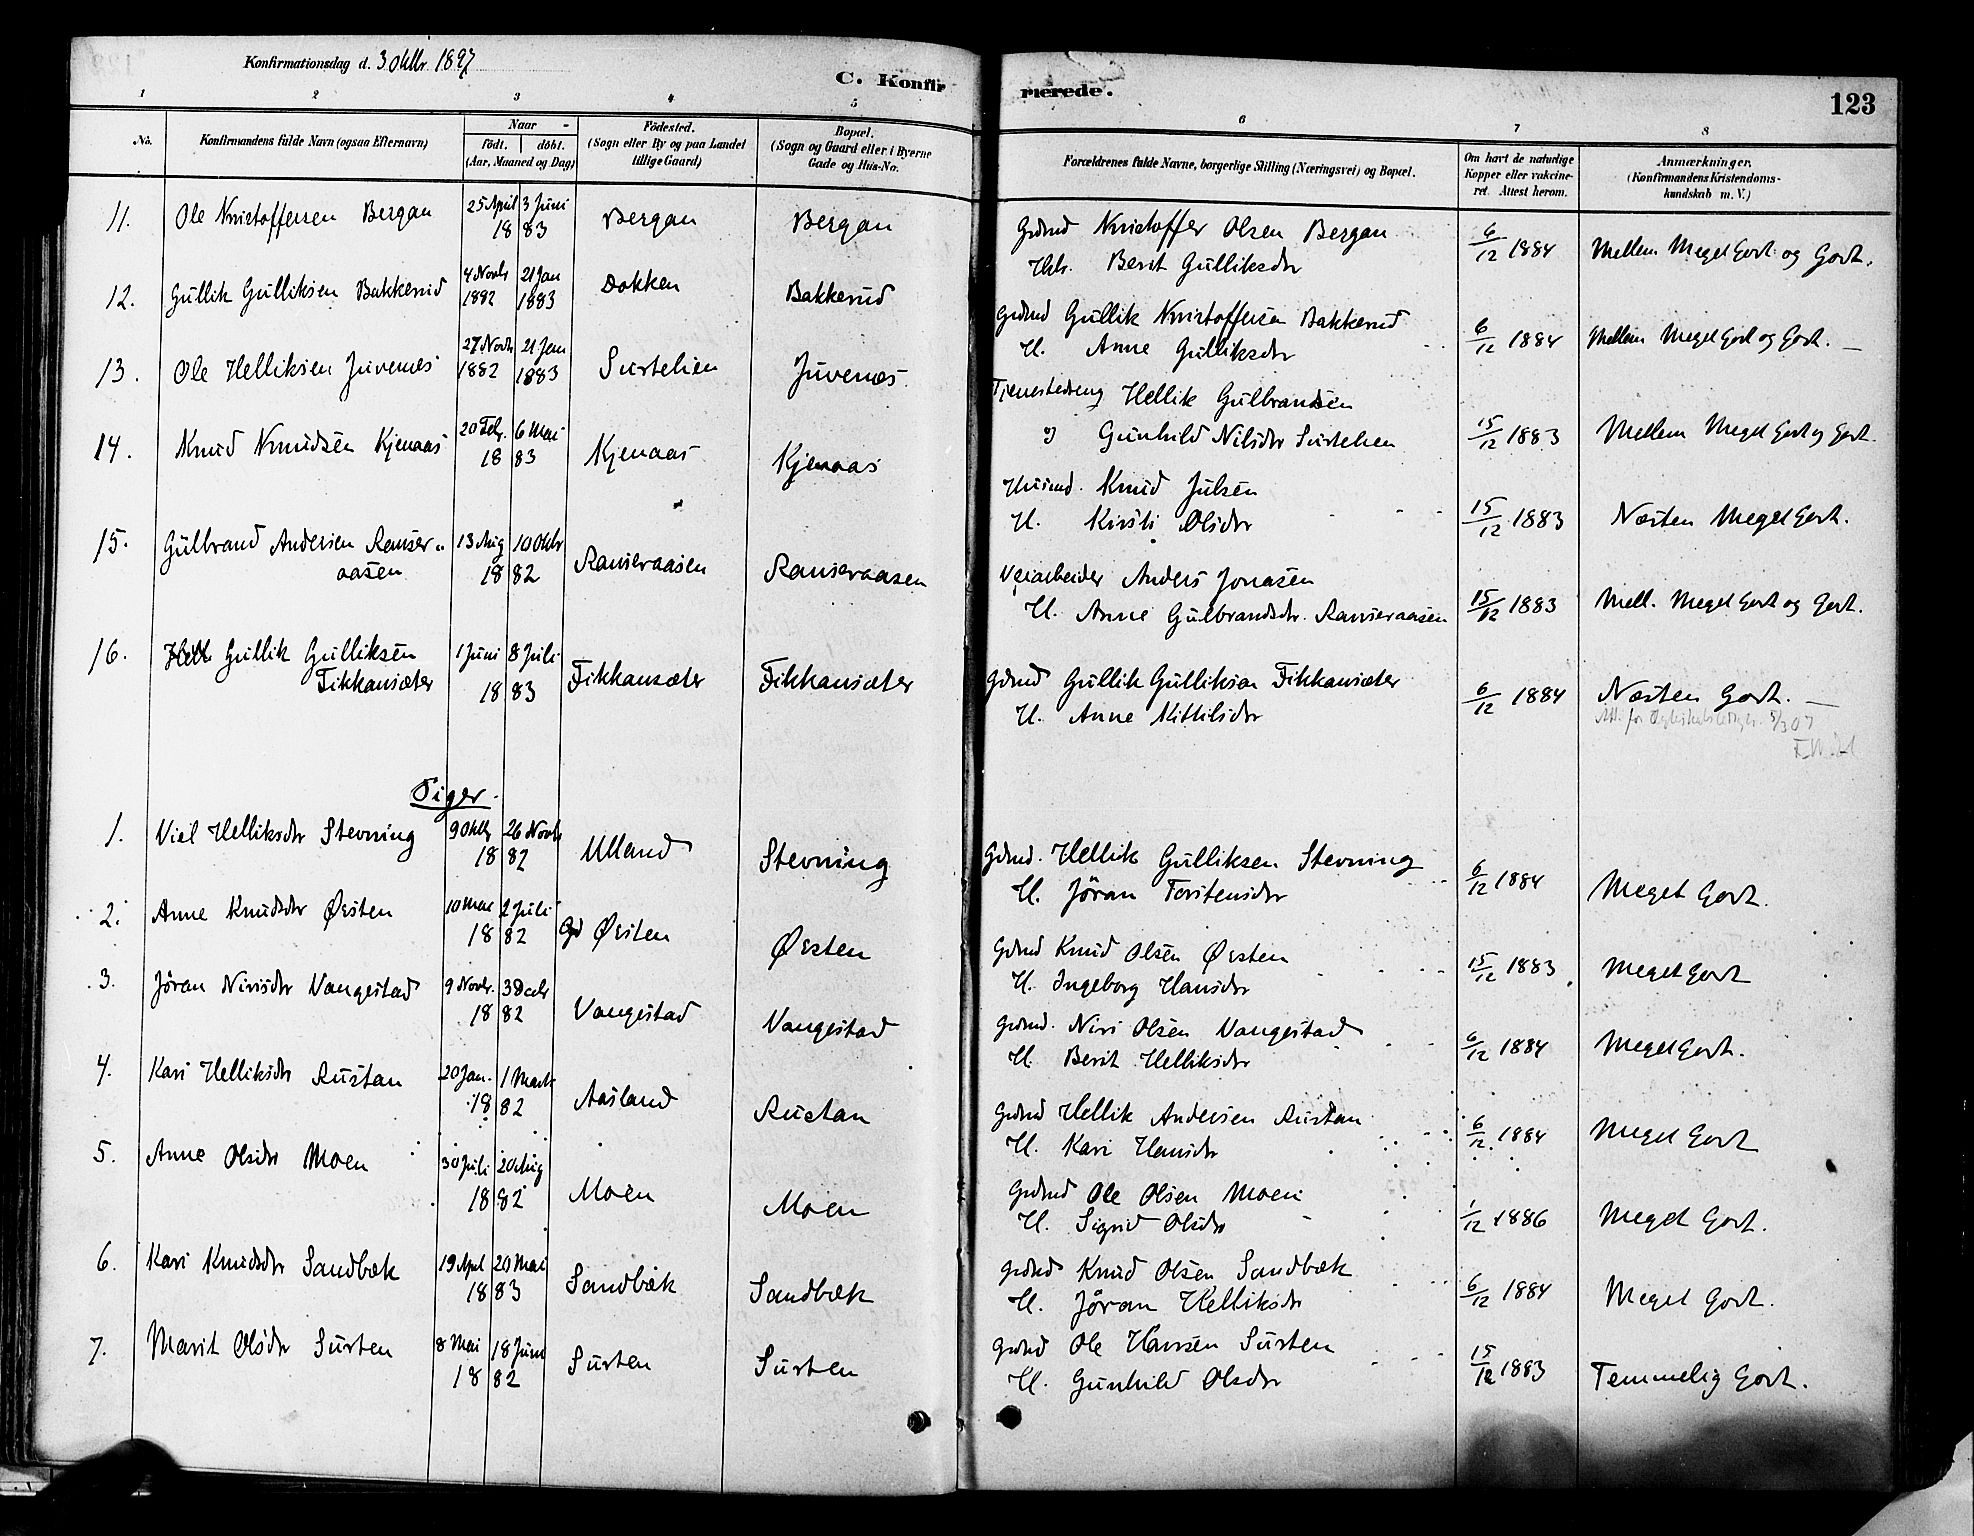 Konfirmationsdag d. 3 Oktbr 1897
C. Konfirmerede.
123
1 2 3 4 5 6 7 8
No. Konfirmandens fulde Navn (ogsaa Efternavn) Naar født. døbt. (Aar, Maaned og Dag) Fødested. (Sogn eller By og paa Landet tillige Gaard) Bopæl. (Sogn og Gaard eller i Byerne Gade og Hus-No. Forældrenes fulde Navne, borgerlige Stilling (Næringsvei) og Bopæl. Om havt de naturlige Kopper eller vakcineret. Attest herom. Anmærkninger. (Konfirmandens Kristendomskundskab m. V.)
11. Ole Kristoffersen Bergan 25 April 3 Juni 1883 Bergan Bergan Gdmd Kristoffer Olsen Bergan 6/12 1884 Mellem Meget Godt og Godt.
Berit Gulliksdr
12. Gullik Gulliksen Bakkerud 4 Novbr 1882 21 Jan 1883 Dokken Bakkerud Gdmd Gullik Kristoffersen Bakkerud 6/12 1884 Mellem Meget Godt og Godt. –
H. Anne Gulliksdr
13. Ole Helliksen Juvenes 27 Novbr 1882 21 Jan 1883 Surtelien Juvenes Tjenestedreng Hellik Gulbrandsen
og Gunhild Nilsdr Surtelien 15/12 1883 Mellem Meget Godt og Godt
14. Knud Knudsen Kjenaas 20 Febr. 6 Mai 1883 Kjenaas Kjenaas Husmd. Knud Julsen
H. Kirsti Olsdr 15/12 1883 Næsten Meget Godt.
15. Gulbrand Andersen Ranseraasen 13 Aug 10 Oktbr 1882 Ranseraasen Ranseraasen Veiarbeider Anders Jonasen
H. Anne Gulbrandsdr. Ranseraasen 15/12 1883 Mell. Meget Godt og Godt.
16. Gullik Gulliksen Fikkansæter 1 Juni 8 Juli 1883 Fikkansæter Fikkansæter Gdmd Gullik Gulliksen Fikkansæter 6/12 1884 Næsten Godt. –
H. Anne Kittilsdr
5/3 07
Piger.
1. Viel Helliksdr Stevning 9 Oktbr 26 Novbr 1882 Ulland Stevning Gdmd. Hellik Gulliksen Stevning 6/12 1884 Meget Godt.
H. Jöran Torstensdr
2. Anne Knudsdr Østen 10 Mai 2 Juli 1882 Østen Østen Gdmd Knud Olsen Østen 15/12 1883 Meget Godt
H. Ingeborg Hansdr
3. Jöran Nirisdr Vangestad 9 Novbr. 3 Decbr 1882 Vangestad Vangestad Gdmd. Niri Olsen Vangestad 6/12 1884 Meget Godt.
H. Berit Helliksdr
4. Kari Helliksdr Rustan 20 Jan. 1 Marts 1882 Aasland Rustan Gdmd Hellik Andersen Rustan 6/12 1884 Meget Godt
H. Kari Hansdr
5. Anne Olsdr Moen 30 Juli 20 Aug 1882 Moen Moen Gdmd Ole Olsen Moen 1/12 1886 Meget Godt.
H. Sigrid Olsdr
6. Kari Knudsdr Sandbæk 19 Apl 20 Mai 1883 Sandbæk Sandbæk Gdmd Knud Olsen Sandbæk 6/12 1884 Meget Godt.
H. Jöran Helliksdr
7. Marit Olsdr Surten 8 Mai 18 Juni 1882 Surten Surten Gdmd Ole Hansen Surten 15/12 1883 Temmelig Godt.
H. Gunhild Olsdr